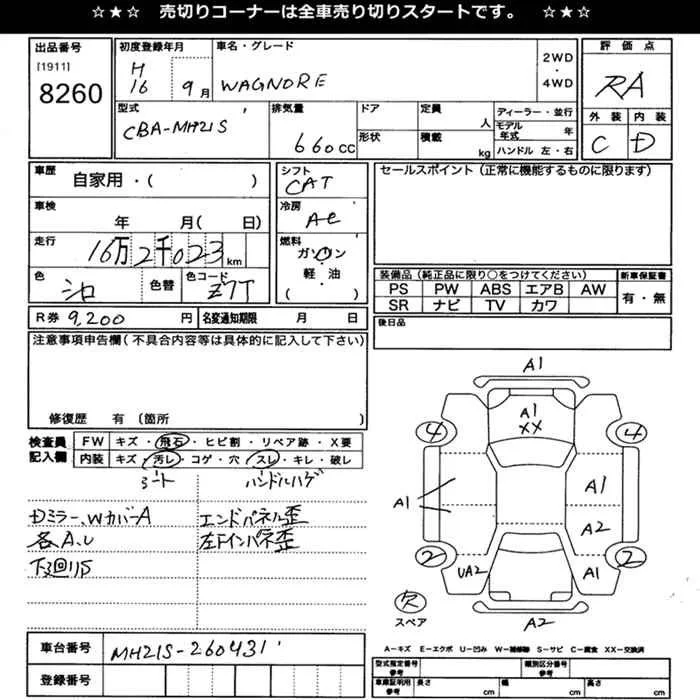 ☆★☆ 売切りコーナーは全車売り切りスタートです。 ☆★☆
出品番号
[1911]
8260
初度登録年月
H
16 9月
車名・グレード
WAGNORE
2WD
・
4WD
評価点
RA
外装 内装
C D
型式
CBA-MH21S
排気量
660cc
ドア
形状
定員
人
積載
kg
ディーラー・並行
モデル年式 年
ハンドル 左・右
車歴
自家用・( )
車検
年 月( 日)
走行
16万2千023km
色
シロ
色替
色コード
Z7T
シフト
CAT
冷房
AC
燃料
ガソリン
軽・油
( )
セールスポイント(正常に機能するものに限ります)
装備品(純正品に限り○をつけてください)
PS PW ABS エアB AW
SR ナビ TV カワ
新車保証書
有・無
R券 9,200 円
名変通知期限 月 日
後日品
注意事項申告欄(不具合内容等は具体的に記入して下さい)
修復歴 有 (箇所 )
検査員
記入欄
FW キズ・飛石・ヒビ割・リペア跡・X要
内装 キズ・汚レ・コゲ・穴・スレ・キレ・破レ
シート ハンドルハゲ
Dミラー、WカバーA
各A、U
下廻りS
エンドパネル歪
左Fインパネ歪
A1
A1
XX
4 4
A1
A1
A2
2 2
UA2
A1
欠
スペア
A2
車台番号
MH21S-260431
登録番号
A−キズ E−エクボ U−凹み W−補修跡 S−サビ C−腐食 XX−交換済
型式指定番号
参考
類別区分番号
参考
車庫証明用
参考
長さ cm
幅 cm
高さ cm